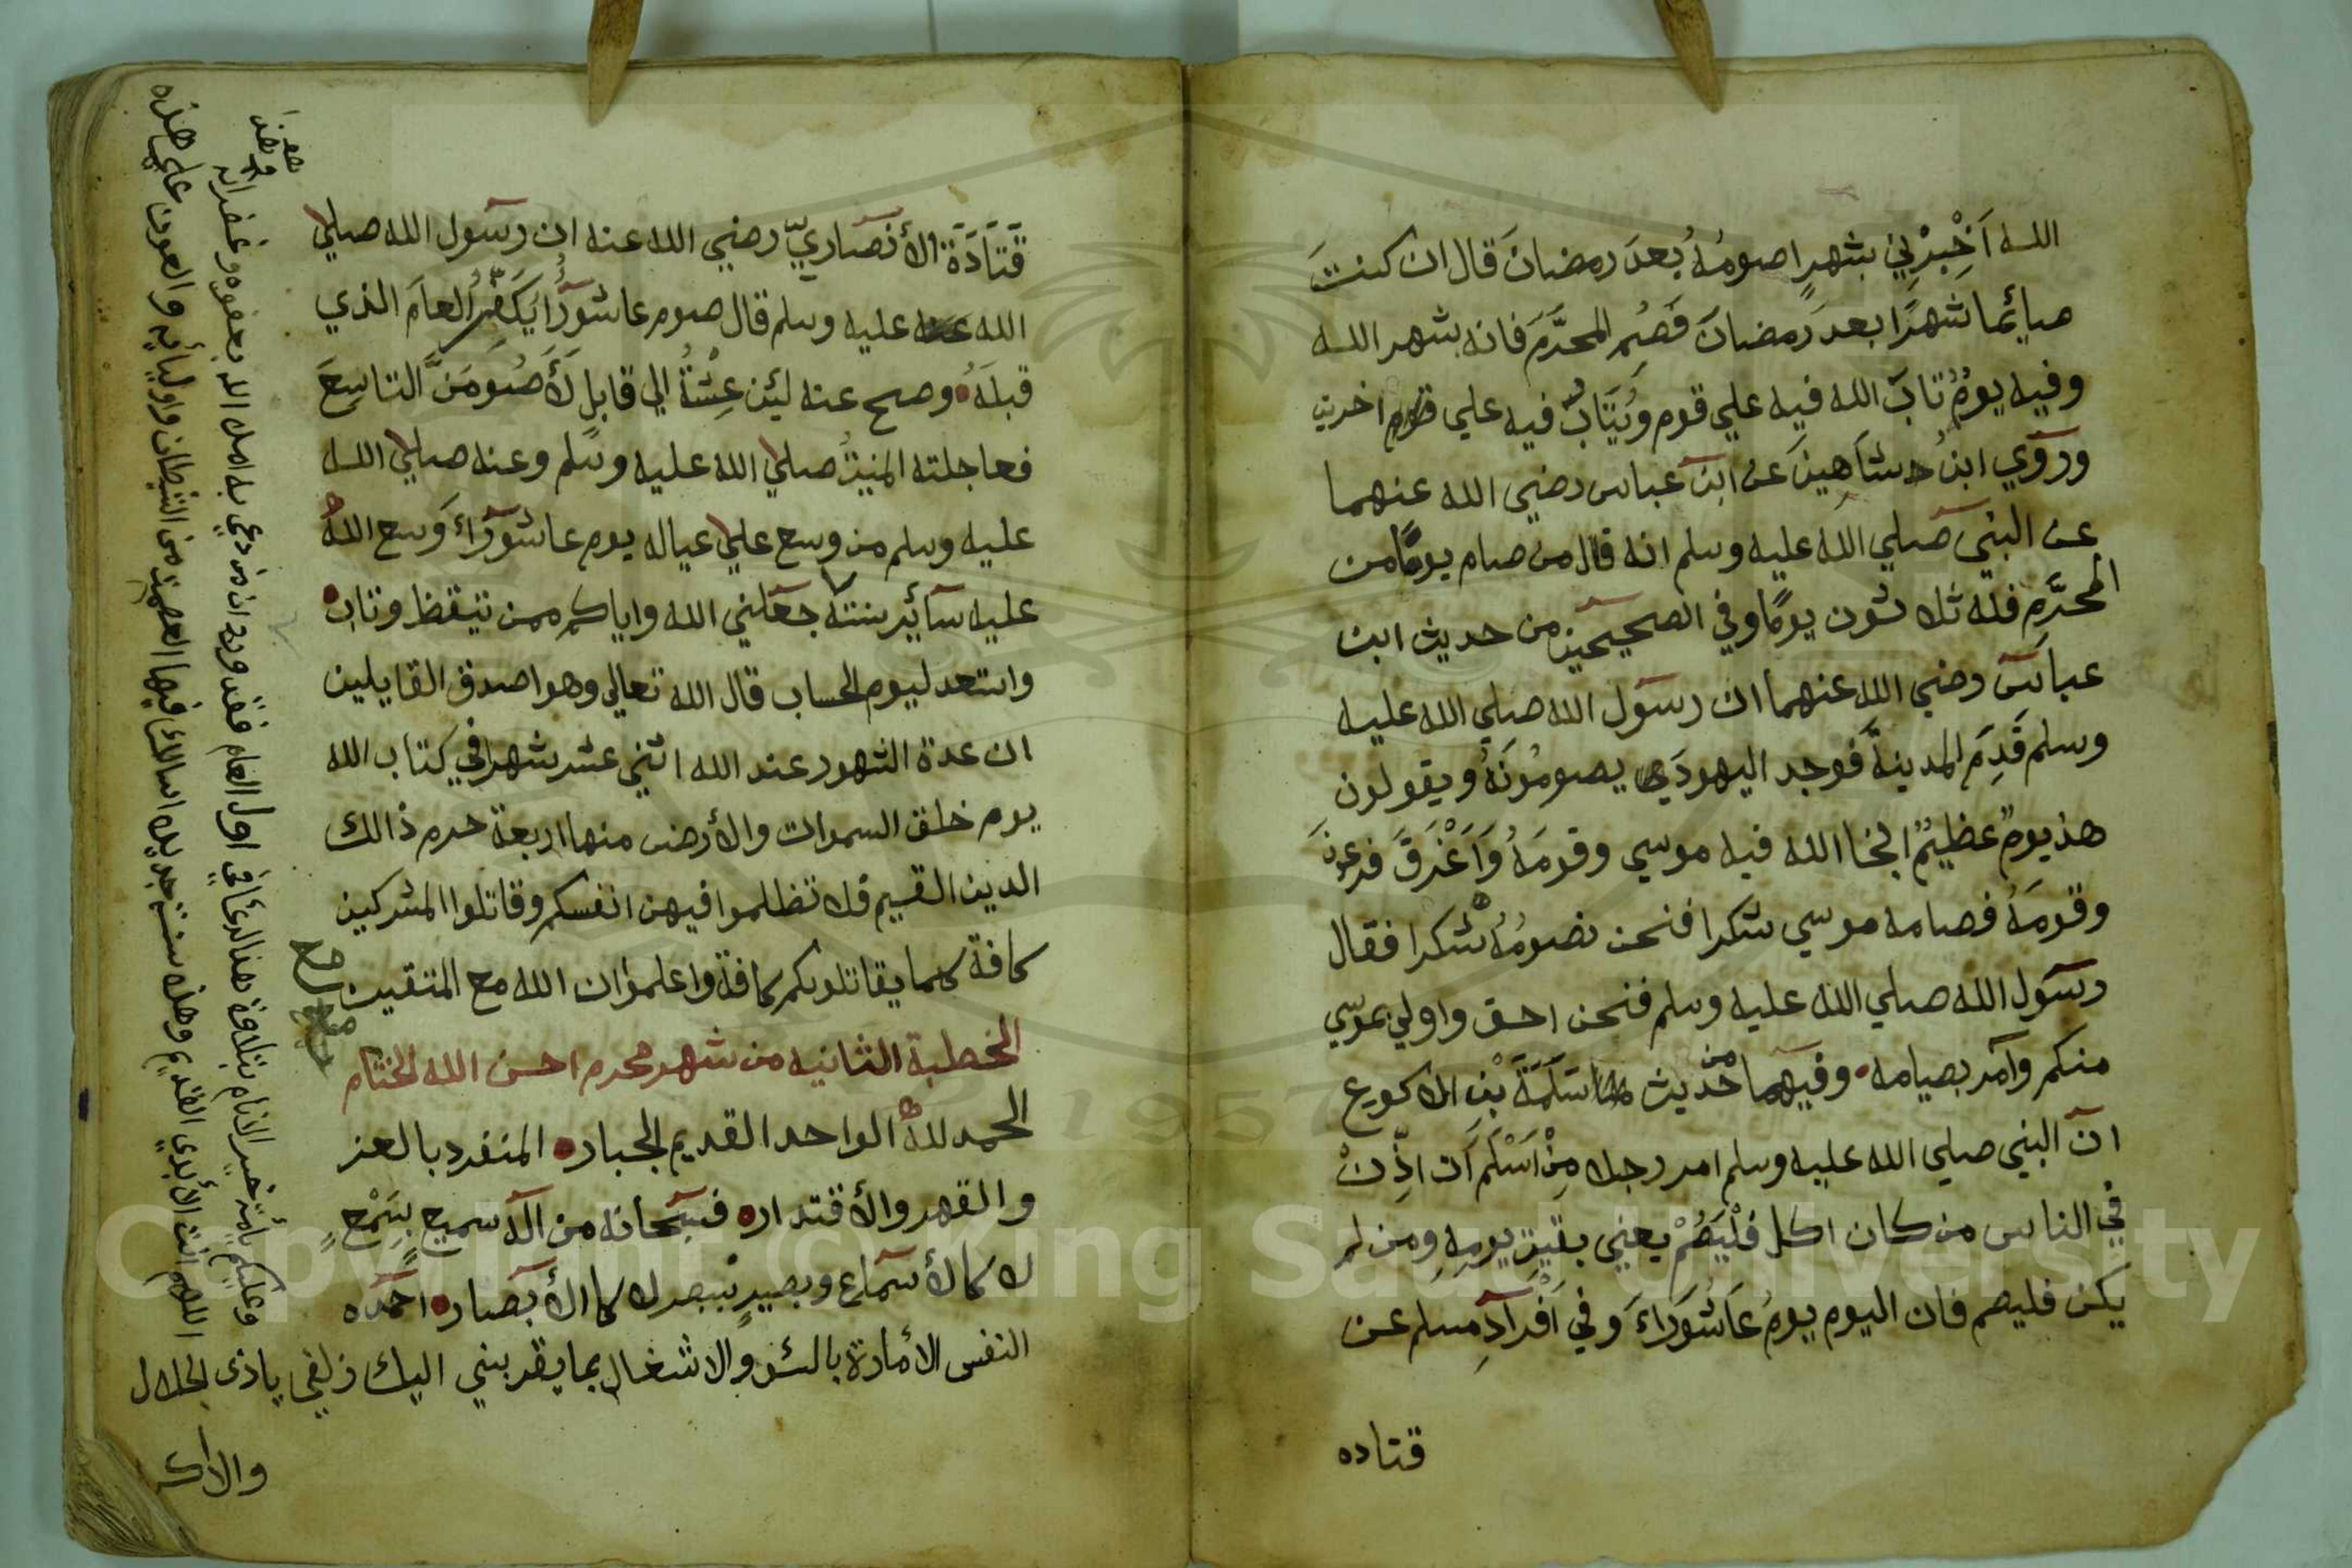 الله اَخْبِرْنِي بشهرٍ اصومُهُ بعدَ رمضانَ قال ان كنتَ
صيائما شهرًا بعد رَمضانَ فَصُمِ المحرَّمَ فانه شهر الله
وفيه يومٌ تابَ الله فيه علي قوم ويُتَابُ فيه علي قوم اخرين
وروي ابنُ شاهينَ عن ابن عباس رضي الله عنهما
عن النبي صلي الله عليه وسلم انه قال من صام يومًا من
المحرَّمِ فله ثلاثون يومًا وفي الصحيحين من حديث ابن
عباس رضي الله عنهما ان رسول الله صلي الله عليه
وسلم قَدِمَ المدينةَ فوجد اليهودَ يصومُونَهُ ويقولون
هذيومٌ عظيمٌ انجا الله فيه موسي وقومَهُ وَاَغْرَقَ فرعونَ
وقومَهُ فصامه موسي شكرا فنحن نصومُهُ شكرا فقال
رسول الله صلي الله عليه وسلم فنحن احق واولي بموسي
منكم وآمر بصيامه وفيهما من حديث سَلَمَةَ بْنِ الاكوع
ان النبي صلي الله عليه وسلم امر رجلا مِنْ اَسْلَمَ اَن اذِّنْ
في الناس من كان اكل فلْيَصُمْ يعني بقيةَ يومِهِ ومن لم
يكن فليصم فان اليوم يومُ عَاشُورَاءَ وفي اَفْرَادِ مسلم عن
قتاده
قَتَادَةَ الأنصاريّ رضي الله عنه ان رسول الله صلي
الله عليه وسلم قال صوم عاشورأ يُكَفِّرُ العامَ الذي
قبلَهُ وصح عنه لئِن عِشْتُ الي قابلٍ لَأَصُومَنَّ التاسعَ
فعاجلته المنيةُ صلي الله عليه وسلم وعنه صلي الله
عليه وسلم من وسع علي عياله يوم عاشورَاءَ وَسع اللهُ
عليه سآئر سنته جعلني الله واياكم ممن تيقظ وتاب
واستعد ليوم الحساب قال الله تعالي وهو اصدق القايلين
ان عدة الشهور عند الله اثني عشر شهرا في كتاب الله
يوم خلق السموات والأرض منها اربعة حرم ذالك
الدين القيم فلا تظلموا فيهن انفسكم وقاتلوا المشركين
كافة كما يقاتلوكم كافة واعلموا ان الله مع المتقين
صح
الخطبة الثانيه من شهر محرم احسن الله الختام
الحمد للهِ الواحد القديم الجبار المنفرد بالعز
والقهر والأقتدار فسبحانه من آله سميع بِسَمْعٍ
لا كالأسماع وبصيرٍ ببصر لا كاالأبصار احمده
وعليكم يأمة خير الانام بتلاوة هذا لدعأ في اول العام فقد ورد ان من دعي به امله الله بعفوه وغفرانه
اللهم انت الأبدي القديم وهذه سنة جديدة اسالك فيها العصمة من الشيطان واوليأيه والعون علي هذه
النفس الامارة بالسؤ والاشغال بما يقربني اليك زلفي ياذى لجلال
والاكر
Copyright © King Saud University
1957